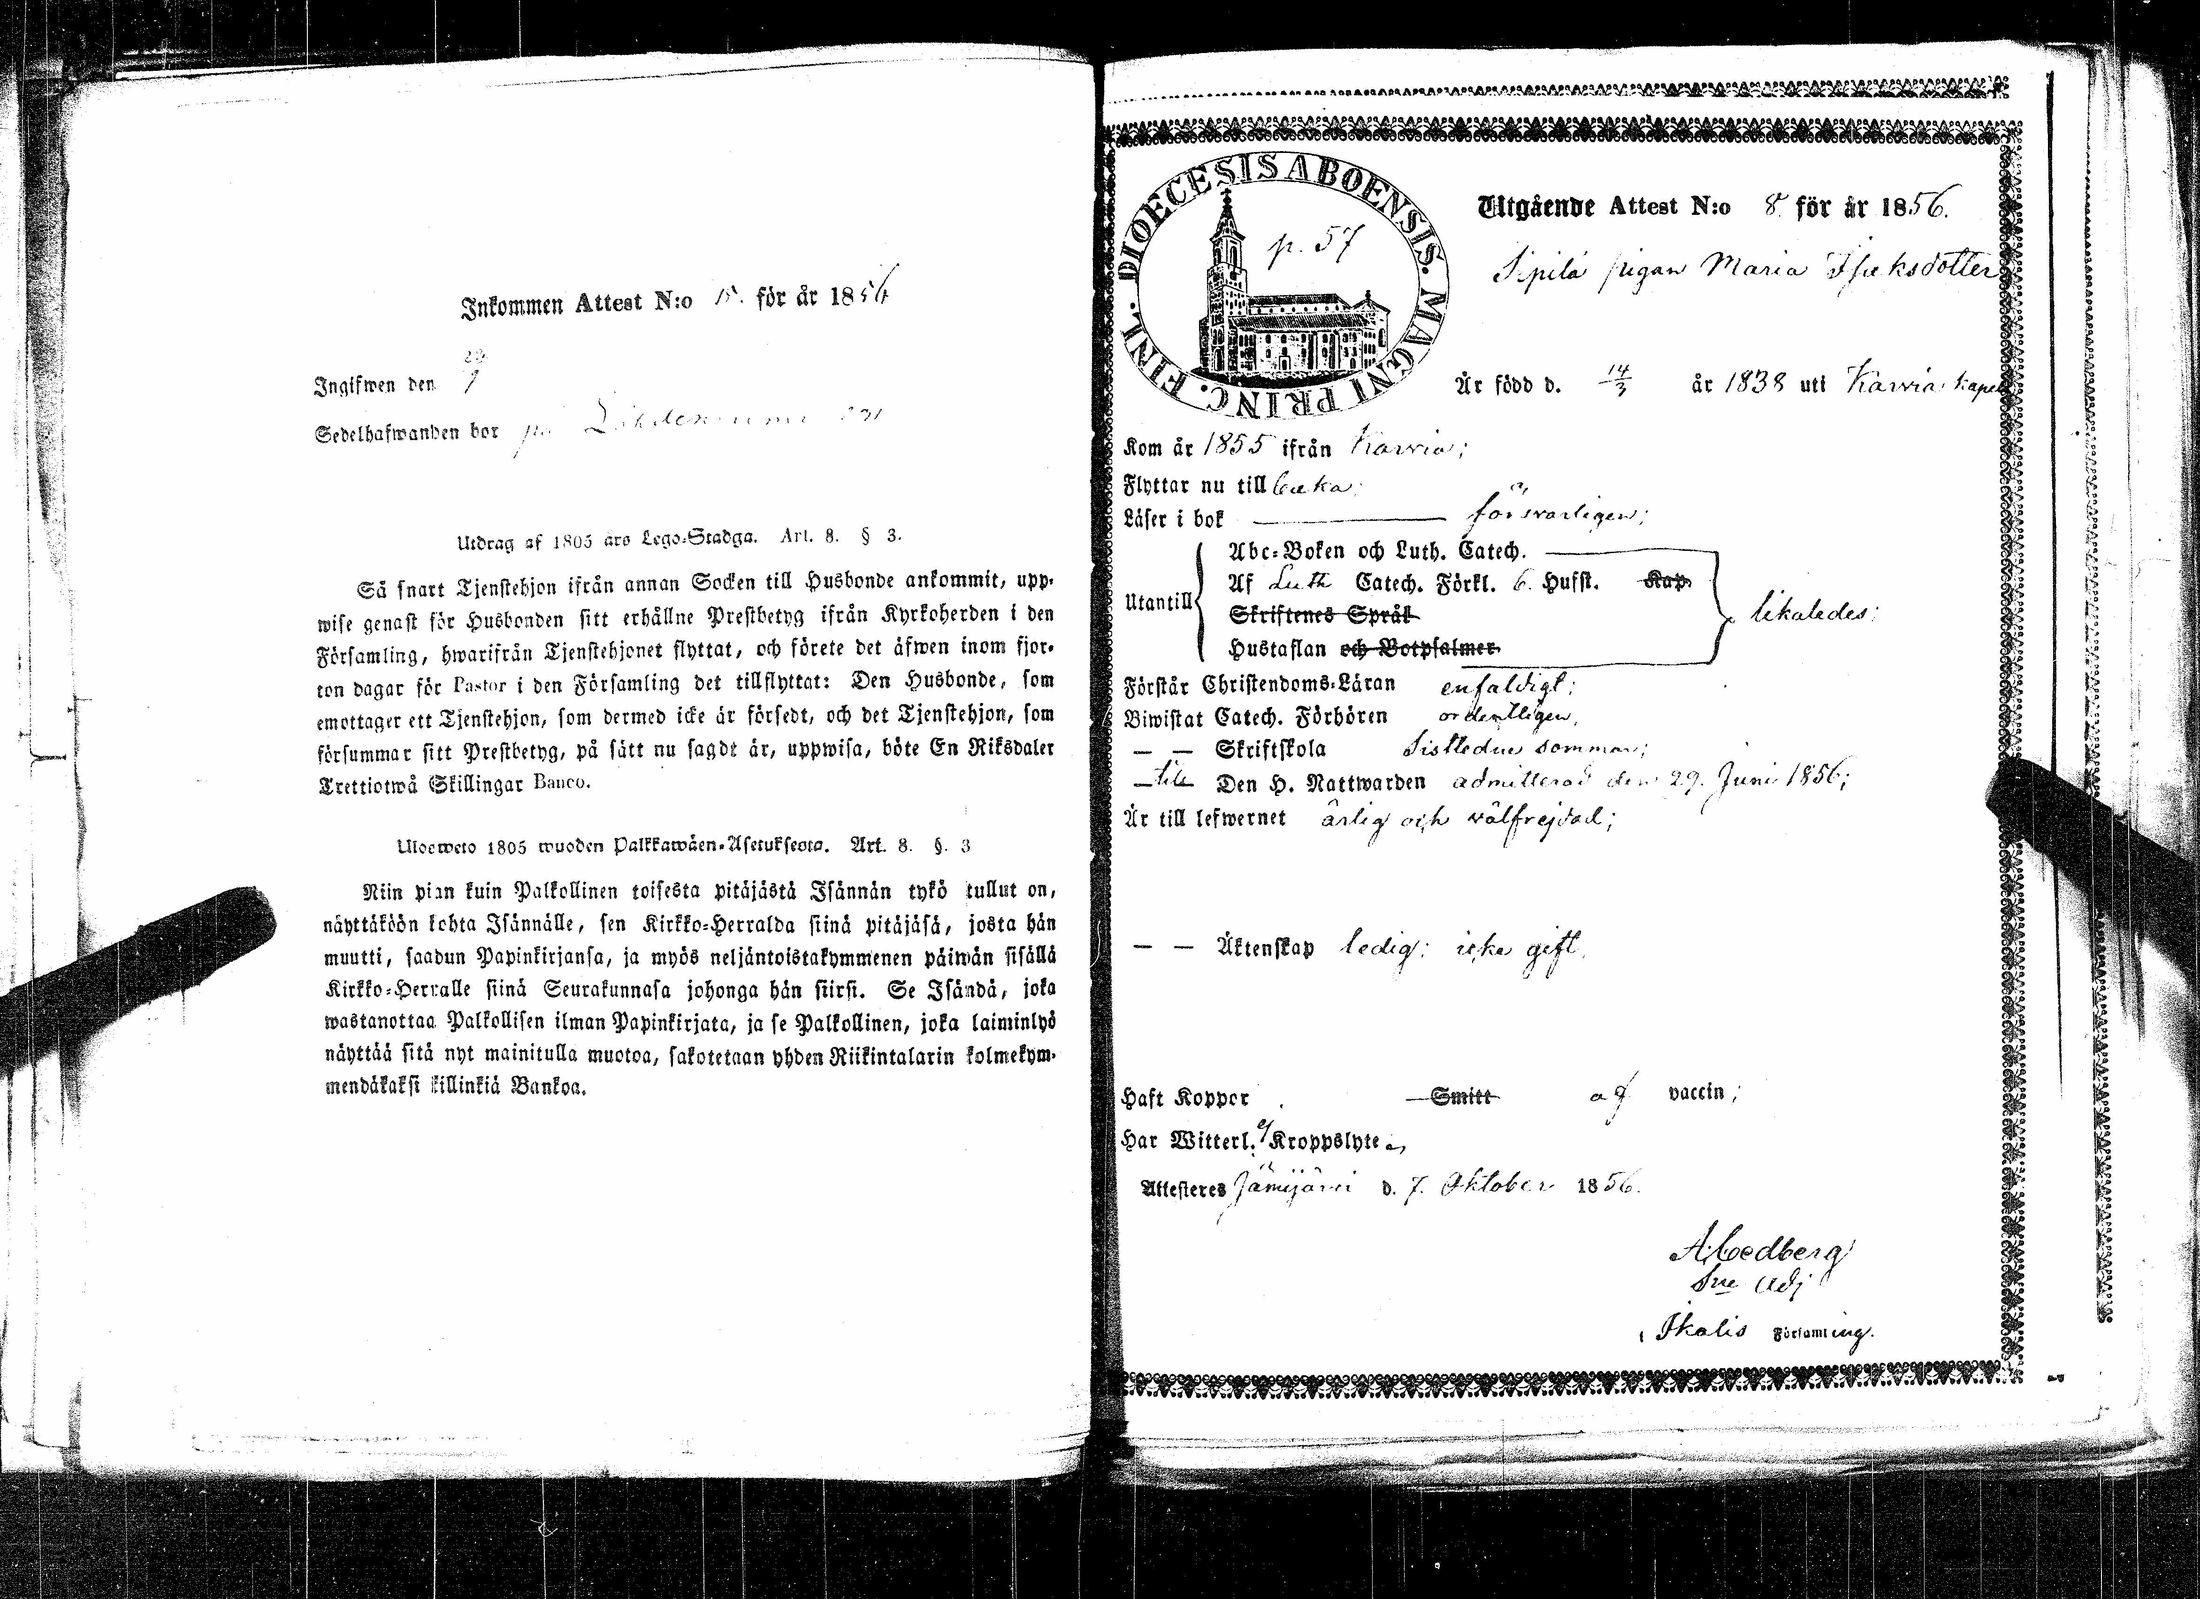 Inkommen Attest N:o 15. för år 1856
Ingifwen den
Sedelhafwanden bor på
Utdrag af 1805 års Lego-Stadga. Art. 8. § 3.
Så snart Tjenstehjon ifrån annan Socken till Husbonde ankommit, upp-
wise genast för Husbonden sitt erhållne Prestbetyg ifrån Kyrkoherden i den
Församling, hwarifrån Tjenstehjonet flyttat, och förete det äfwen inom fjor-
ton dagar för Pastor i den Församling det tillflyttat: Den Husbonde, som
emottager ett Tjenstehjon, som dermed icke är försedt, och det Tjenstehjon, som
försummar sitt Prestbetyg, på sätt nu sagdt är, uppwisa, böte En Riksdaler
Trettiotwå Skillingar Banco.
Ulosweto 1805 wuoden Palkkawäen-Asetuksesta. Art. 8. §. 3
Niin pian kuin Palkollinen toisesta pitäjästä Isännän tykö tullut on,
näyttäköön kohta Isännälle, sen Kirkko-Herralda siinä pitäjäsä, josta hän
muutti, saadun Papinkirjansa, ja myös neljäntoistakymmenen päiwän sisällä
Kirkko-Herralle siinä Seurakunnasa johonga hän siirsi. Se Isändä, joka
wastanottaa Palkollisen ilman Papinkirjata, ja se Palkollinen, joka laiminlyö
näyttää sitä nyt mainitulla muotoa, sakotetaan yhden Riikintalarin kolmekym-
mendäkaksi killinkiä Bankoa.
DIOECESIS ABOENSIS. MAGNI PRINC. FINL.
p. 57
Utgående Attest N:o 8 för år 1856.
Sipilä pigan Maria Isaksdotter
Är född d. 14/3 år 1838 uti Karvia kapell
Kom år 1855 ifrån Karvia;
Flyttar nu till
Läser i bok försvarligen;
Abc-Boken och Luth. Catech.
Utantill Af Luth Catech. Förkl. 6. Hufst. Kap.
Skriftenes Språk likaledes;
Hustaflan och Botpsalmer
Förstår Christendoms-Läran enfaldigt;
Biwistat Catech. Förhören ordentligen,
— — Skriftskola sistledne sommar;
— till Den H. Nattwarden admitterad den 29. Juni 1856;
Är till lefwernet ärlig och välfrejdad;
— — Äktenskap ledig; icke gift.
Haft Koppor Smitt af vaccin;
Har Witterl. ej Kroppslyte
Attesteres Jämijärvi d. 7. Oktober 1856.
A. Cedberg
Sne Adj
i Ikalis Församling.